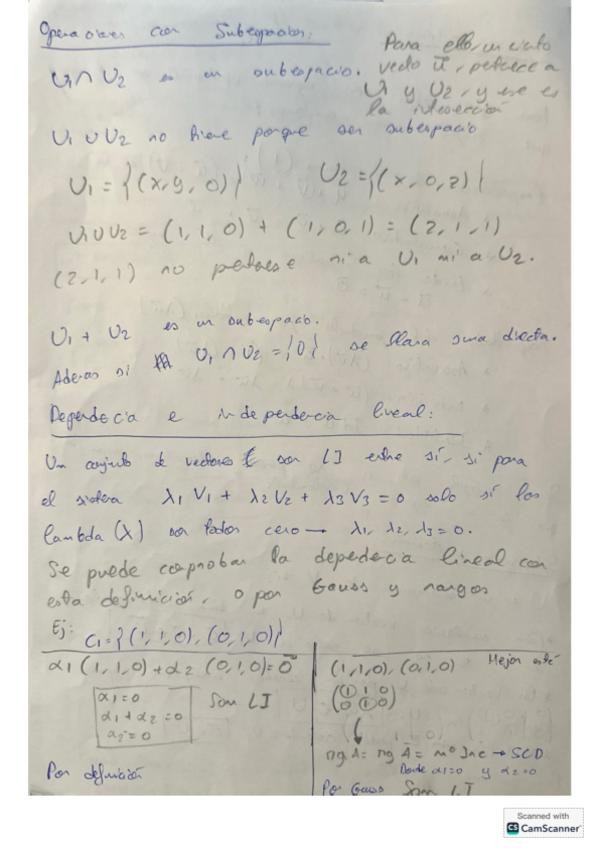 Operaciones con Subespacios:
Para ello, un cierto
U1 ∩ U2 es un subespacio. vector ū, pertenece a
U1 y U2, y ese es
la intersección
U1 ∪ U2 no tiene porque ser subespacio
U1 = {(x, y, 0)} U2 = {(x, 0, z)}
U1 ∪ U2 = (1, 1, 0) + (1, 0, 1) = (2, 1, 1)
(2, 1, 1) no pertenece ni a U1 ni a U2.
U1 + U2 es un subespacio.
Además si U1 ∩ U2 = {0} se llama suma directa.
Dependencia e independencia lineal:
Un conjunto de vectores son LI entre sí, si para
el sistema λ1 V1 + λ2 V2 + λ3 V3 = 0 solo si los
lambda (λ) son todos cero → λ1, λ2, λ3 = 0.
Se puede comprobar la dependencia lineal con
esta definición, o por Gauss y rangos
Ej: C1 = {(1, 1, 0), (0, 1, 0)}
α1 (1, 1, 0) + α2 (0, 1, 0) = 0
α1 = 0
α1 + α2 = 0
α2 = 0
Son LI
Por definición
(1, 1, 0), (0, 1, 0) Mejor este
(1 1 0)
(0 1 0)
rg A = rg Ā = nº Inc → SCD
Donde α1=0 y α2=0
Por Gauss Son LI
Scanned with
CS CamScanner